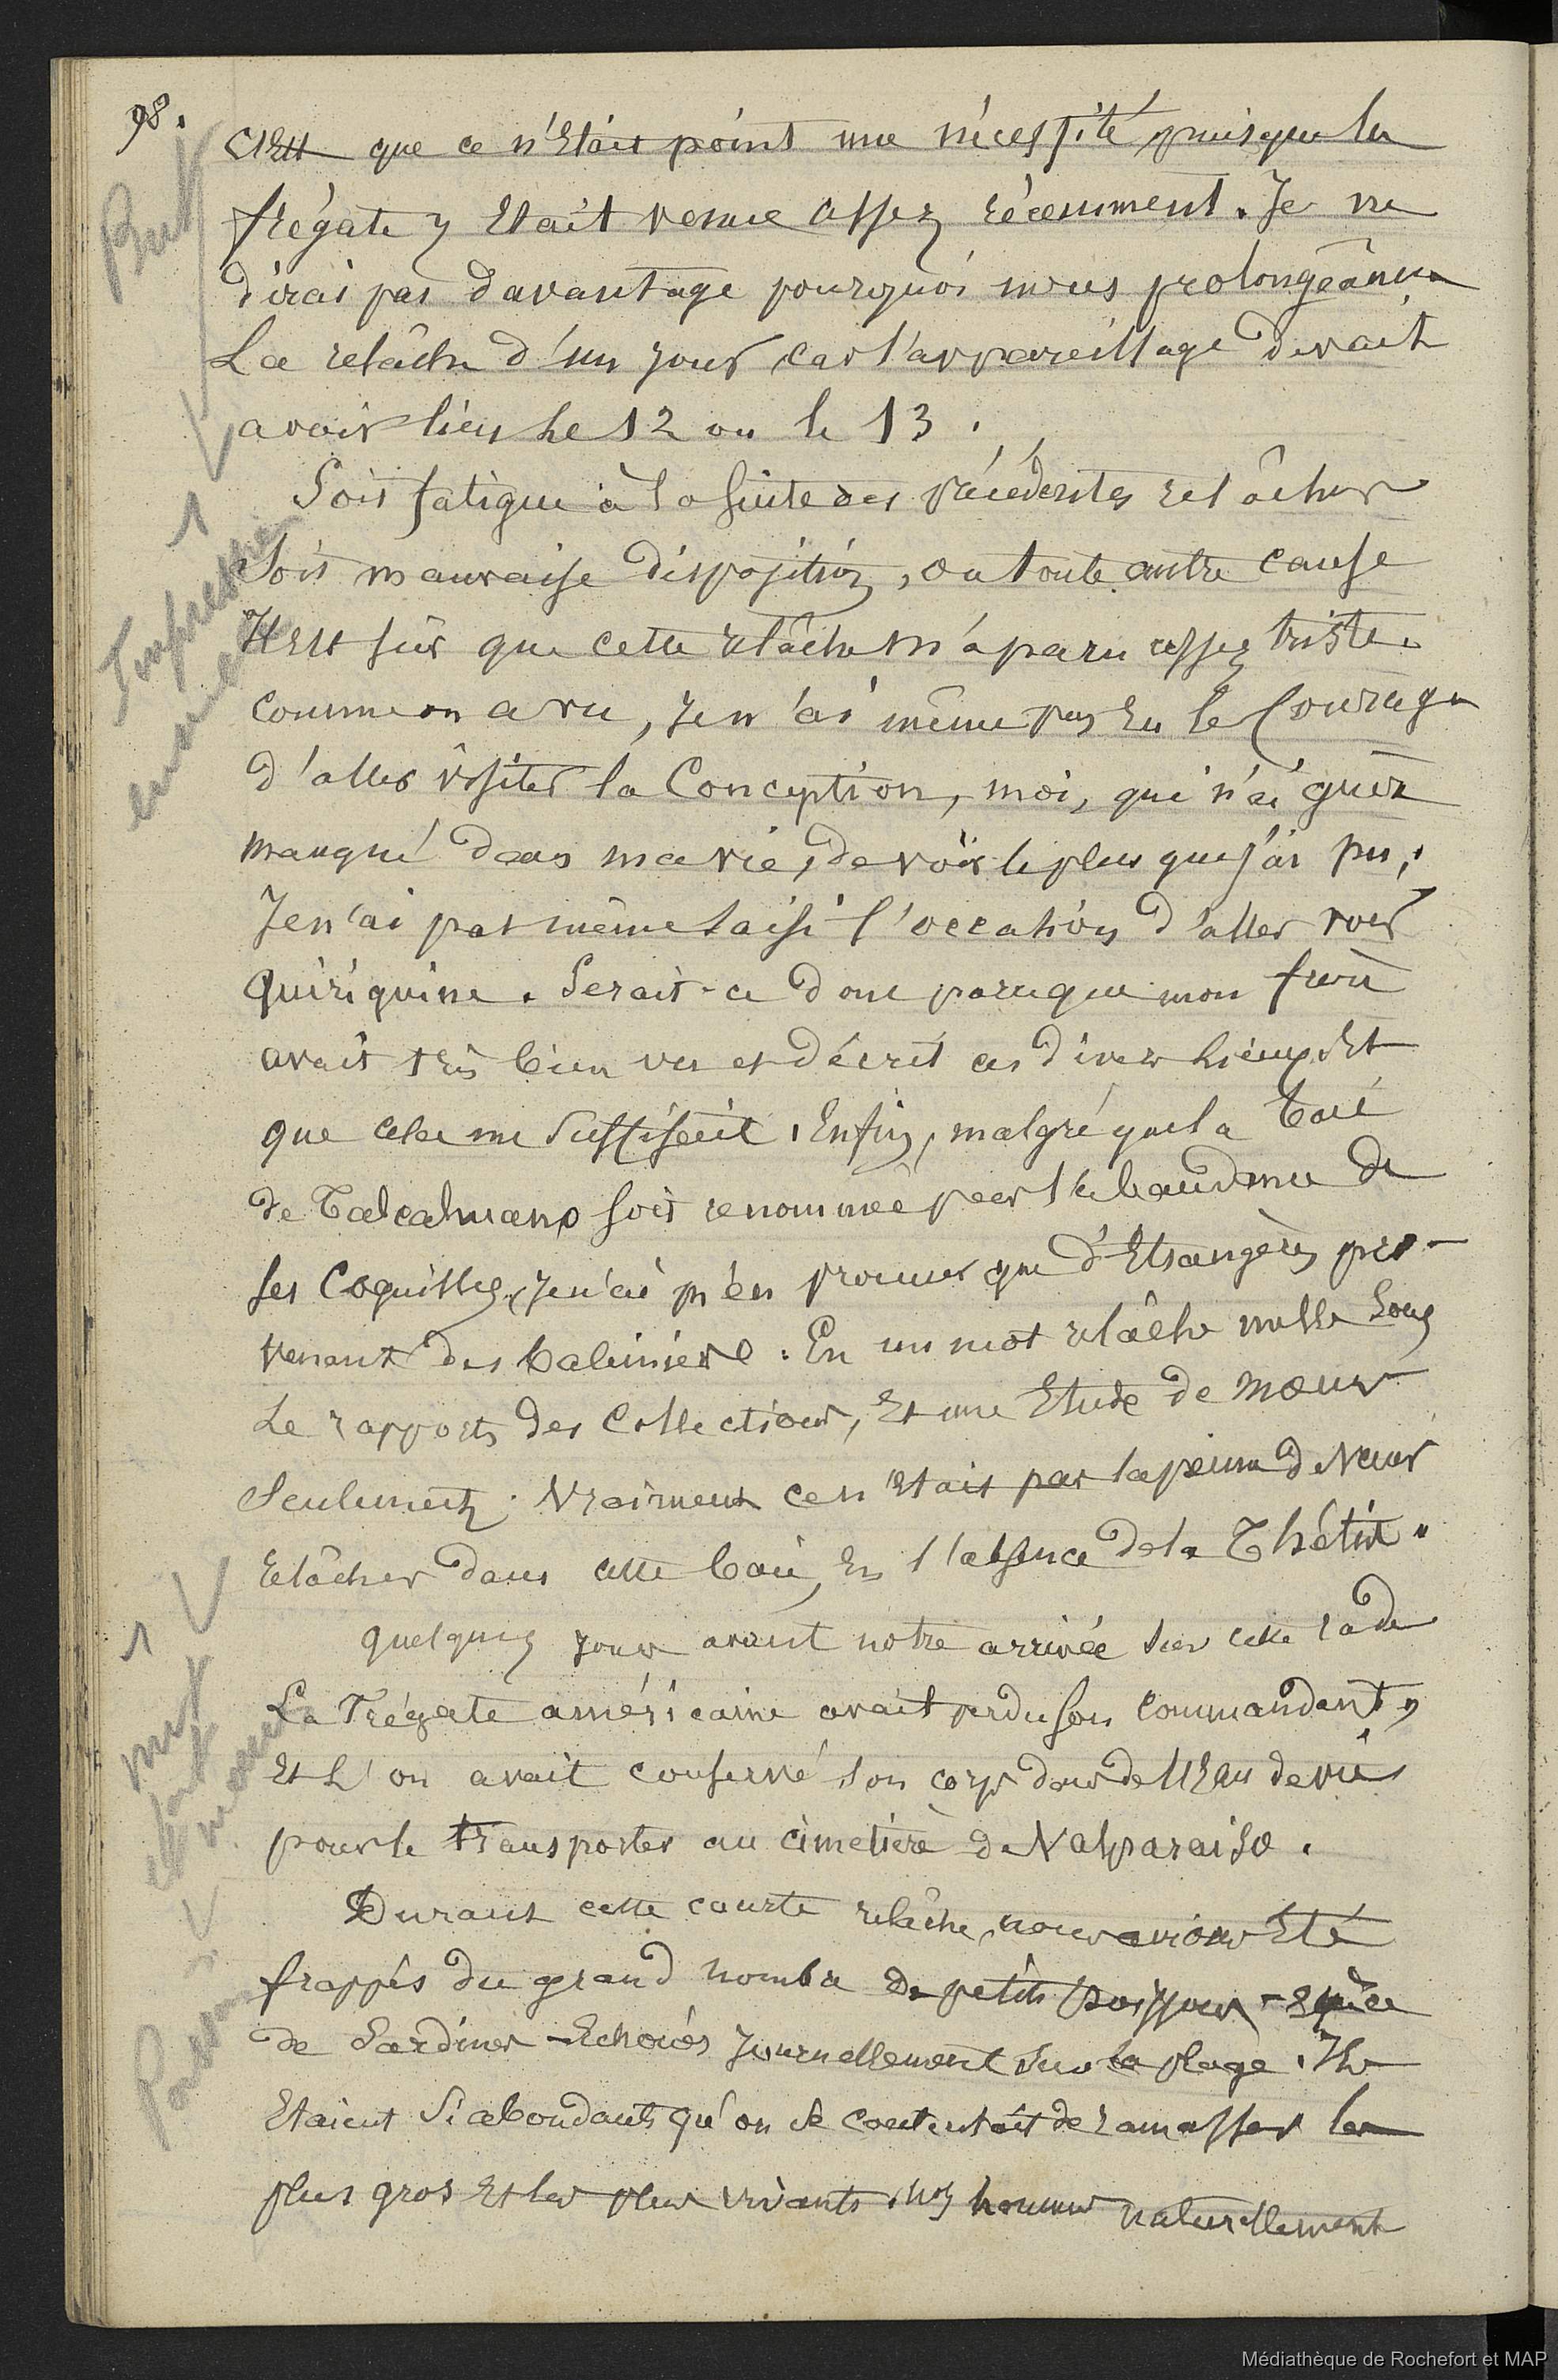 98.
C'est que ce n'était point une nécessité puisque la
frégate y était venue assez récemment. Je ne
dirai pas davantage pourquoi nous prolongeâmes
La relâche d'un jour, car l'appareillage devait
avoir lieu Le 12 ou le 13.
But
Soit fatigue à la suite des précédentes relâches
Soit mauvaise disposition, ou toute autre cause
Il est sûr que cette relâche m'a paru assez triste.
comme on a vu, Je n'ai même pas eu le Courage
d'aller visiter la Conception, moi, qui n'ai guère
manqué dans ma vie, de voir le plus que j'ai pu;
Je n'ai pas même saisi l'occasion d'aller voir
Quiriquine. Serait-ce donc parceque mon frère
avait très bien vu et décrit ces divers lieux, Et
que cela me suffisait. Enfin, malgré que la baie
de Talcahuano soit renommée par l'abondance de
ses Coquilles, Je n'ai pu en trouver que d'Etrangères pro-
venant des baleiniers. En un mot relâche nulle sous
Le rapport des Collections, Et une Etude de mœurs
Seulement. Vraiment ce n'était pas la peine de venir
relâcher dans cette baie, en l'absence de la Thétis.
1
quelques jours avant notre arrivée sur cette rade
La Frégate américaine avait perdu son commandant,
Et L'on avait conservé son corps dans de l'Eau de vie
pour le transporter au cimetière de Valparaiso.
Durant cette courte relâche, nous avions été
frappés du grand nombre de petits poissons - espèce
de Sardines - Echoués Journellement sur la plage. Ils
Etaient si abondants qu'on se contentait de ramasser les
plus gros Et les plus vivants. nos hommes naturellement
Médiathèque de Rochefort et MAP